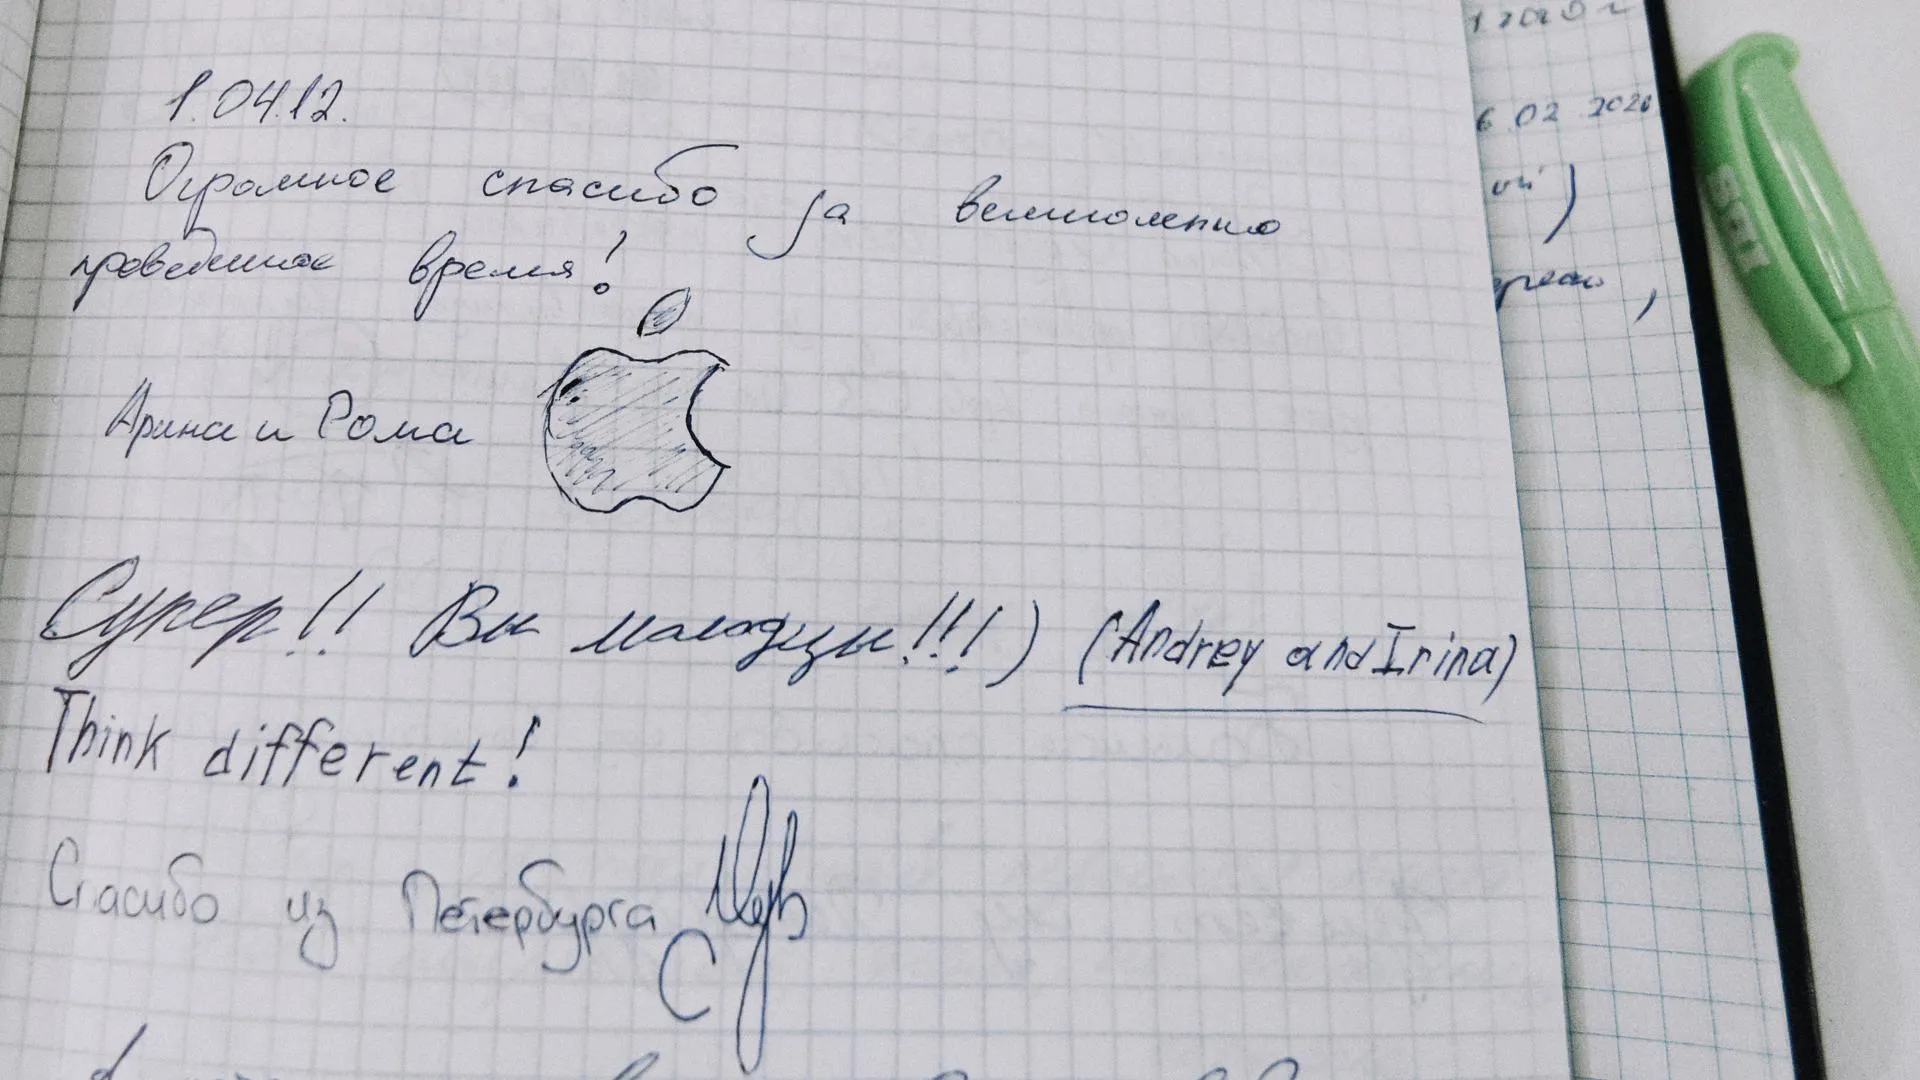 1.04.12.
Огромное спасибо за великолепно
проведенное время!
Арина и Рома
Супер!! Вы молодцы!!!) (Andrey and Irina)
Think different!
Спасибо из Петербурга
6.02.2020